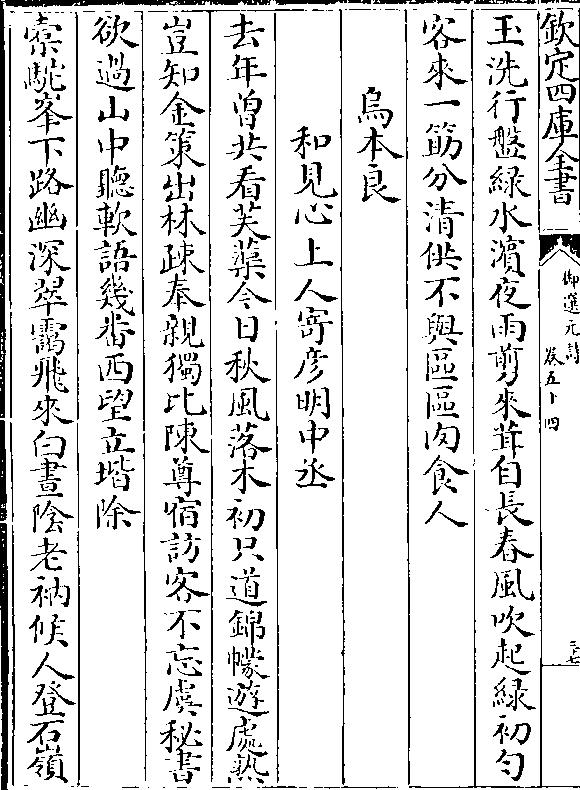 欽定四庫全書
御選元詩
卷五十四
三七
玉洗行盤綠水濵夜雨剪來茸自長春風吹起綠初勻
客來一筯分清供不與區區肉食人
烏本良
和見心上人寄彦明中丞
去年曽共看芙蕖今日秋風落木初只道錦幪遊處熟
豈知金策出林疎奉親獨比陳尊宿訪客不忘虞秘書
欲過山中聽軟語幾畨西望立堦除
槖駝峯下路幽深翠靄飛來白晝陰老衲候人登石嶺